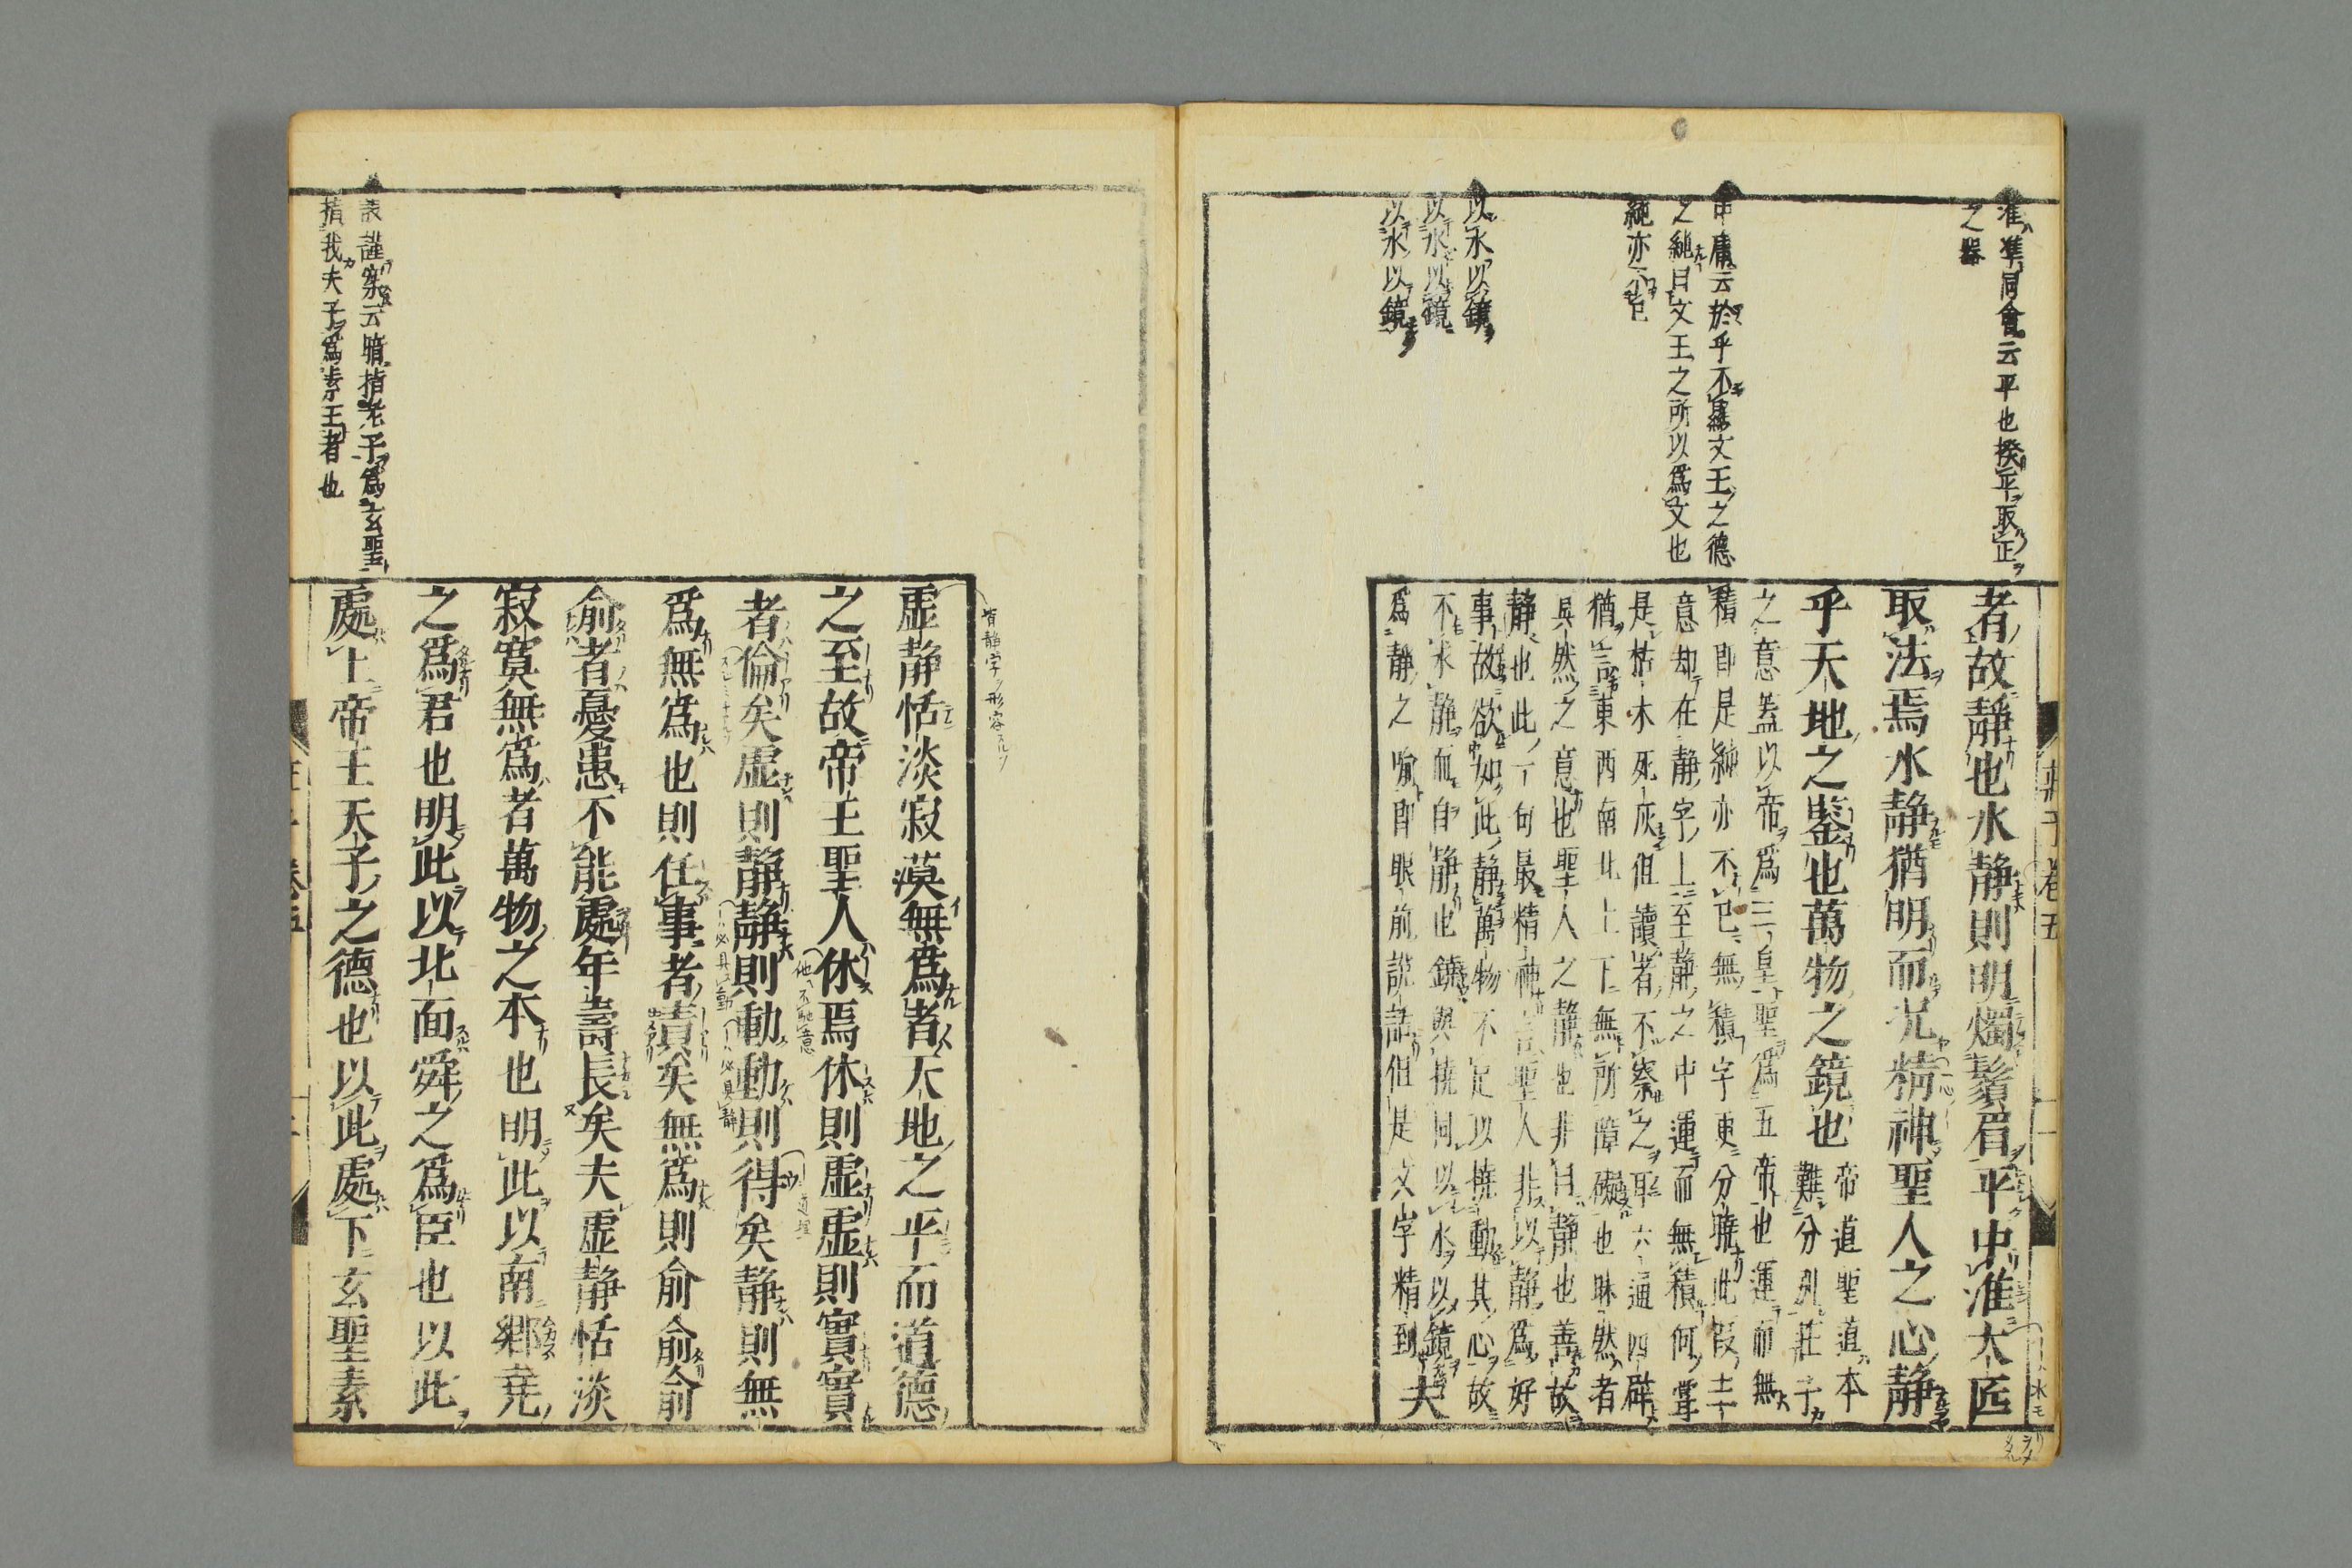 准準同會云平也揆平取正
之器
中庸云於乎不顯文王之德
之純曰文王之所以爲文也
純亦不已
以水以鏡
以水以鏡
以水以鏡
莊子卷五
者故靜也水靜則明燭鬚眉平中准大匠
取法焉水靜猶明而況精神聖人之心靜
乎天地之鑒也萬物之鏡也帝道聖道本
難分列莊子
之意蓋以帝爲三皇聖爲五帝也運而無
積即是純亦不已無積字更分曉此段主
意却在靜字上至靜之中運而無積何嘗
是枯木死灰但讀者不察之耳六通四辟
猶言東西南北上下無所障礙也昧然者
冥然之意也聖人之靜也非曰靜也善故
靜也此一句最精神言聖人非以靜爲好
事故欲如此靜萬物不足以撓動其心故
不求靜而自靜也鐃與撓同以水以鏡
爲靜之喻即眼前說話但是文字精到夫
虛靜恬淡寂漠無爲者天地之平而道德
之至故帝王聖人休焉休則虛虛則實實
者倫矣虛則靜靜則動動則得矣靜則無
爲無爲也則任事者責矣無爲則俞俞俞
俞者憂患不能處年壽長矣夫虛靜恬淡
寂寞無爲者萬物之本也明此以南鄉堯
之爲君也明此以北面舜之爲臣也以此
處上帝王天子之德也以此處下玄聖素
謹案云暗指老子爲玄聖
指我夫子爲素王者也